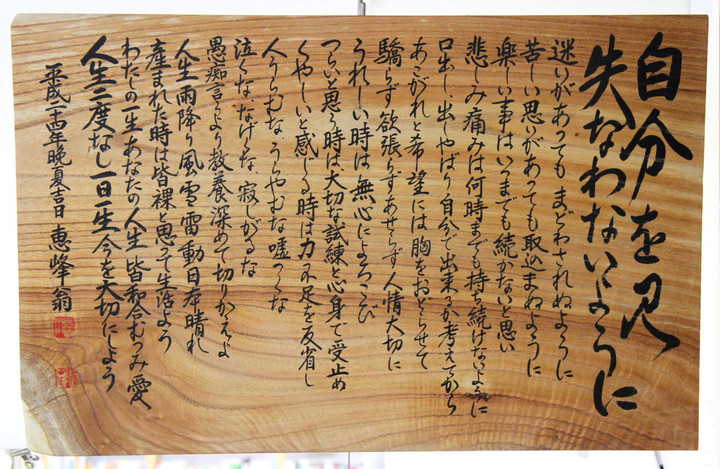 自分を見
失なわないように
迷いがあっても まどわされぬように
苦しい思いがあっても取込まぬように
楽しい事はいつまでも続かないと思い
悲しみ痛みは何時までも持ち続けないように
口出し出しやばり自分で出来るか考えてから
あこがれと希望には胸をおどらせて
驕らず欲張らずあせらず人情大切に
うれしい時は無心によろこび
つらいと思う時は大切な試練と心身で受止め
くやしいと感じる時は力不足を反省し
人うらむな うらやむな嘘つくな
泣くな なげくな 寂しがるな
愚痴言うより教養深めて切りかえよ
人生雨降り風雪雷動日本晴れ
産まれた時は皆裸と思って生活よう
わたしの一生あなたの人生 皆和合む 愛
人生二度なし一日一生今を大切にしよう
平成二十四年晩夏吉日 恵峰翁